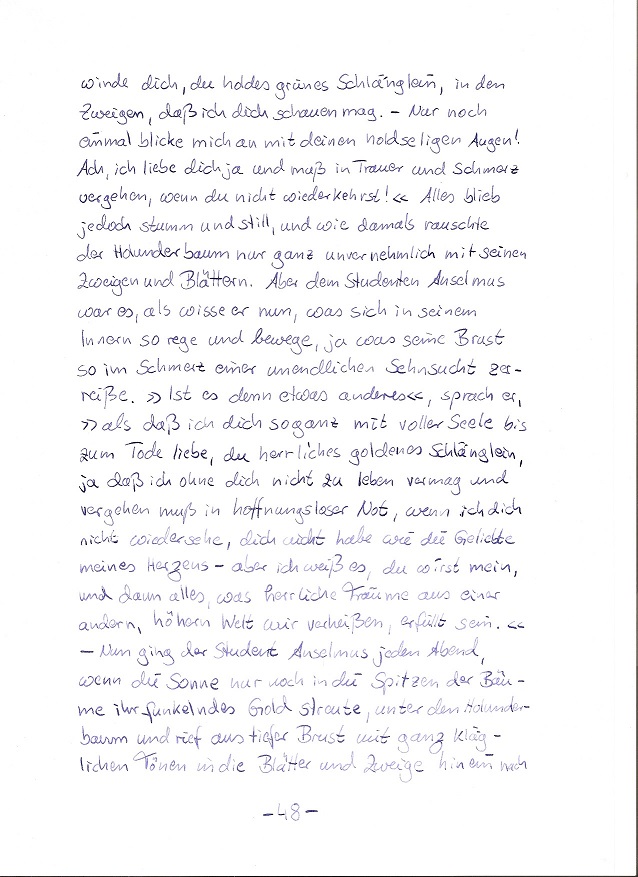 winde dich, du holdes grünes Schlänglein, in den
Zweigen, daß ich dich schauen mag. – Nur noch
einmal blicke mich an mit deinen holdseligen Augen!
Ach, ich liebe dich ja und muß in Trauer und Schmerz
vergehen, wenn du nicht wiederkehrst!« Alles blieb
jedoch stumm und still, und wie damals rauschte
der Holunderbaum nur ganz unvernehmlich mit seinen
Zweigen und Blättern. Aber dem Studenten Anselmus
war es, als wisse er nun, was sich in seinem
Innern so rege und bewege, ja was seine Brust
so im Schmerz einer unendlichen Sehnsucht zer-
reiße. »Ist es denn etwas anderes«, sprach er,
»als daß ich dich so ganz mit voller Seele bis
zum Tode liebe, du herrliches goldenes Schlänglein,
ja daß ich ohne dich nicht zu leben vermag und
vergehen muß in hoffnungsloser Not, wenn ich dich
nicht wiedersehe, dich nicht habe wie die Geliebte
meines Herzens – aber ich weiß es, du wirst mein,
und dann alles, was herrliche Träume aus einer
andern, höhern Welt mir verheißen, erfüllt sein.«
– Nun ging der Student Anselmus jeden Abend,
wenn die Sonne nur noch in die Spitzen der Bäu-
me ihr funkelndes Gold streute, unter den Holunder-
baum und rief aus tiefer Brust mit ganz kläg-
lichen Tönen in die Blätter und Zweige hinein nach
– 48 –